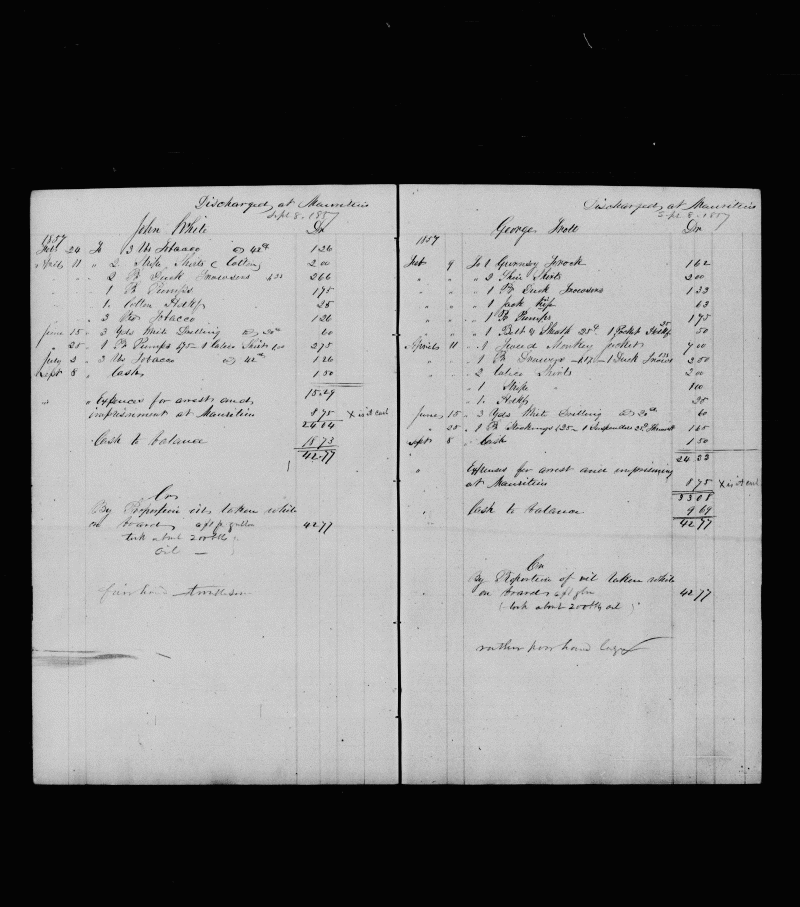 Discharged at Mauritius
Sept 8. 1857
John White Dr
1857
Feb 24 To 3 lbs Tobacco @ 42cts 1 26
April 11 " 2 Stripe Shirts ( Cotton 2 00
" " " 2 Pr Duck Trowsers 2 66
" 1 Pr Pumps 1 75
" 1 Cotton Hdkf 25
" 3 lbs Tobacco 1 26
June 15 " 3 yds White Drilling @ 20cts 60
" 25 " 1 Pr Pumps 175 - 1 Calico Shirt 100 2 75
July 2 " 3 lbs Tobacco @ 42cts 1 26
Sept 8 " Cash 1 50
15.29
" " Expences for arrest and
imprisonment at Mauritius 8 75 X is it cash
24.04
Cash to balance 18 73
42.77
Cr
By Proportion oil taken while
on board 42 77
took about 200 bbls
oil
fair hand
Discharged at Mauritius
Sept 8. 1857
George Dr
1857
Feb 9 To 1 Gurnsey Frock 1 62
" " " 2 Shirts 2 00
" " " 1 Pr Duck Trowsers 1 33
" " " 1 Jack Knife 63
" " " 1 Pr Pumps 1 75
" " " 1 Belt & Sheath 25cts 1 Pocket Hdkf 25 50
April 11 " 1 Lined Monkey jacket 7 00
" " " 1 Pr Drawers - 1 Duck Trowsers 2 50
" " " 2 Calico Shirts 2 00
" " " 1 Stripe " 1 00
" " " 1 Hdkf 25
June 15 " 3 yds White Drilling @ 20cts 60
" 25 " 1 Pr Stockings 125 - 1 Suspenders 1 65
Sept 8 " Cash 1 50
24 33
" Expenses for arrest and imprisonmt
at Mauritius 8 75 X is it cash
33 08
" Cash to balance 9 69
42 77
Cr
By Proportion of oil taken while
on board 42 77
( took about 200 bbls oil )
rather poor hand